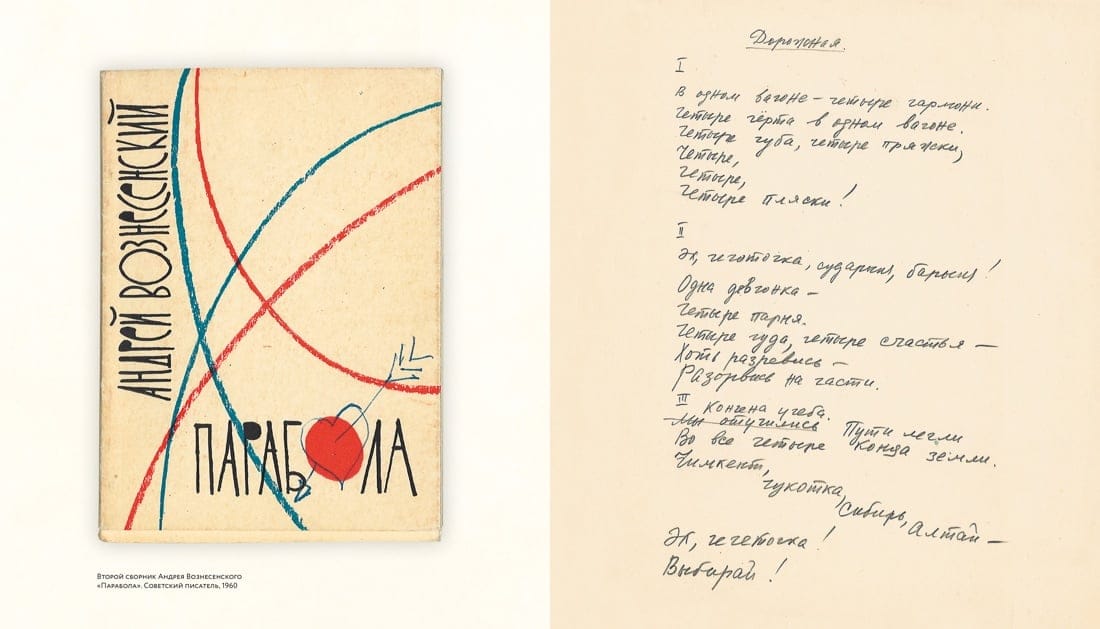 АНДРЕЙ ВОЗНЕСЕНСКИЙ
ПАРАБОЛА
Второй сборник Андрея Вознесенского
«Парабола». Советский писатель, 1960
Дорожная.
I
В одном вагоне – четыре гармони.
Четыре чёрта в одном вагоне.
Четыре чуба, четыре пряжки,
Четыре,
Четыре,
Четыре пляски!
II
Эх, чечёточка, сударыня, барыня!
Одна девчонка –
Четыре парня.
Четыре чуда, четыре счастья –
Хоть разревись –
Разорвись на части.
III
Кончена учеба.
Мы отучились Пути легли
Во все четыре конца земли.
Чимкент,
Чукотка,
Сибирь,
Алтай –
Эх, чечеточка!
Выбирай!